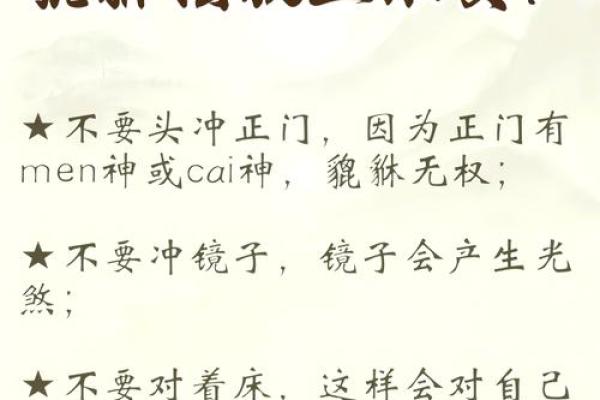 ★不要头冲正门，因为正门有
men神或cai神，貔貅无权；
★不要冲镜子，镜子会产生光
煞；
★不要对着床，这样会对自己